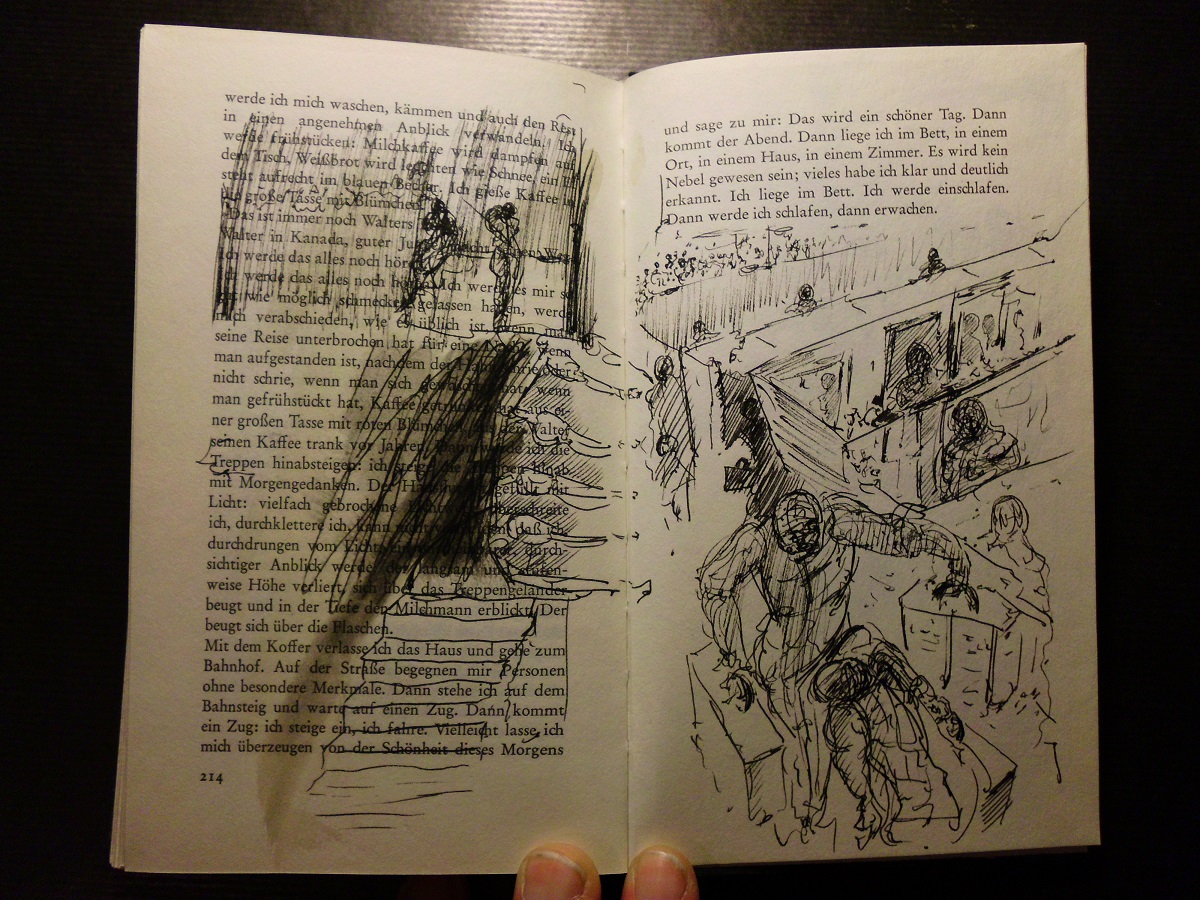 werde ich mich waschen, kämmen und auch den Rest
in einen angenehmen Anblick verwandeln. Ich
werde frühstücken: Milchkaffee wird dampfen auf
dem Tisch, Weißbrot wird leuchten wie Schnee, ein Ei
steht aufrecht im blauen Becher. Ich gieße Kaffee in
die große Tasse mit Blümchen.
Das ist immer noch Walters
Walter in Kanada, guter
Ich werde das alles noch
Ich werde das alles noch Ich werde es mir so
gut wie möglich schmecken gelassen haben, werde
mich verabschieden, wie es üblich ist, wenn man
seine Reise unterbrochen hat für eine wenn
man aufgestanden ist, nachdem der Hahn schrie oder
nicht schrie, wenn man sich gewaschen hat, wenn
man gefrühstückt hat, Kaffee getrunken hat aus ei-
ner großen Tasse mit roten Blümchen, aus der Walter
seinen Kaffee trank vor Jahren. Dann werde ich die
Treppen hinabsteigen: ich steige die Treppen hinab
mit Morgengedanken. Der gefüllt mit
Licht: vielfach gebrochene Lichtwellen überschreite
ich, durchklettere ich, kann nicht daß ich,
durchdrungen vom Licht, ein durch-
sichtiger Anblick werde, der langsam und stufen-
weise Höhe verliert, sich über das Treppengeländer
beugt und in der Tiefe den Milchmann erblickt. Der
beugt sich über die Flaschen.
Mit dem Koffer verlasse ich das Haus und gehe zum
Bahnhof. Auf der Straße begegnen mir Personen
ohne besondere Merkmale. Dann stehe ich auf dem
Bahnsteig und warte auf einen Zug. Dann kommt
ein Zug: ich steige ein, ich fahre. Vielleicht lasse ich
mich überzeugen von der Schönheit dieses Morgens
214
und sage zu mir: Das wird ein schöner Tag. Dann
kommt der Abend. Dann liege ich im Bett, in einem
Ort, in einem Haus, in einem Zimmer. Es wird kein
Nebel gewesen sein; vieles habe ich klar und deutlich
erkannt. Ich liege im Bett. Ich werde einschlafen.
Dann werde ich schlafen, dann erwachen.